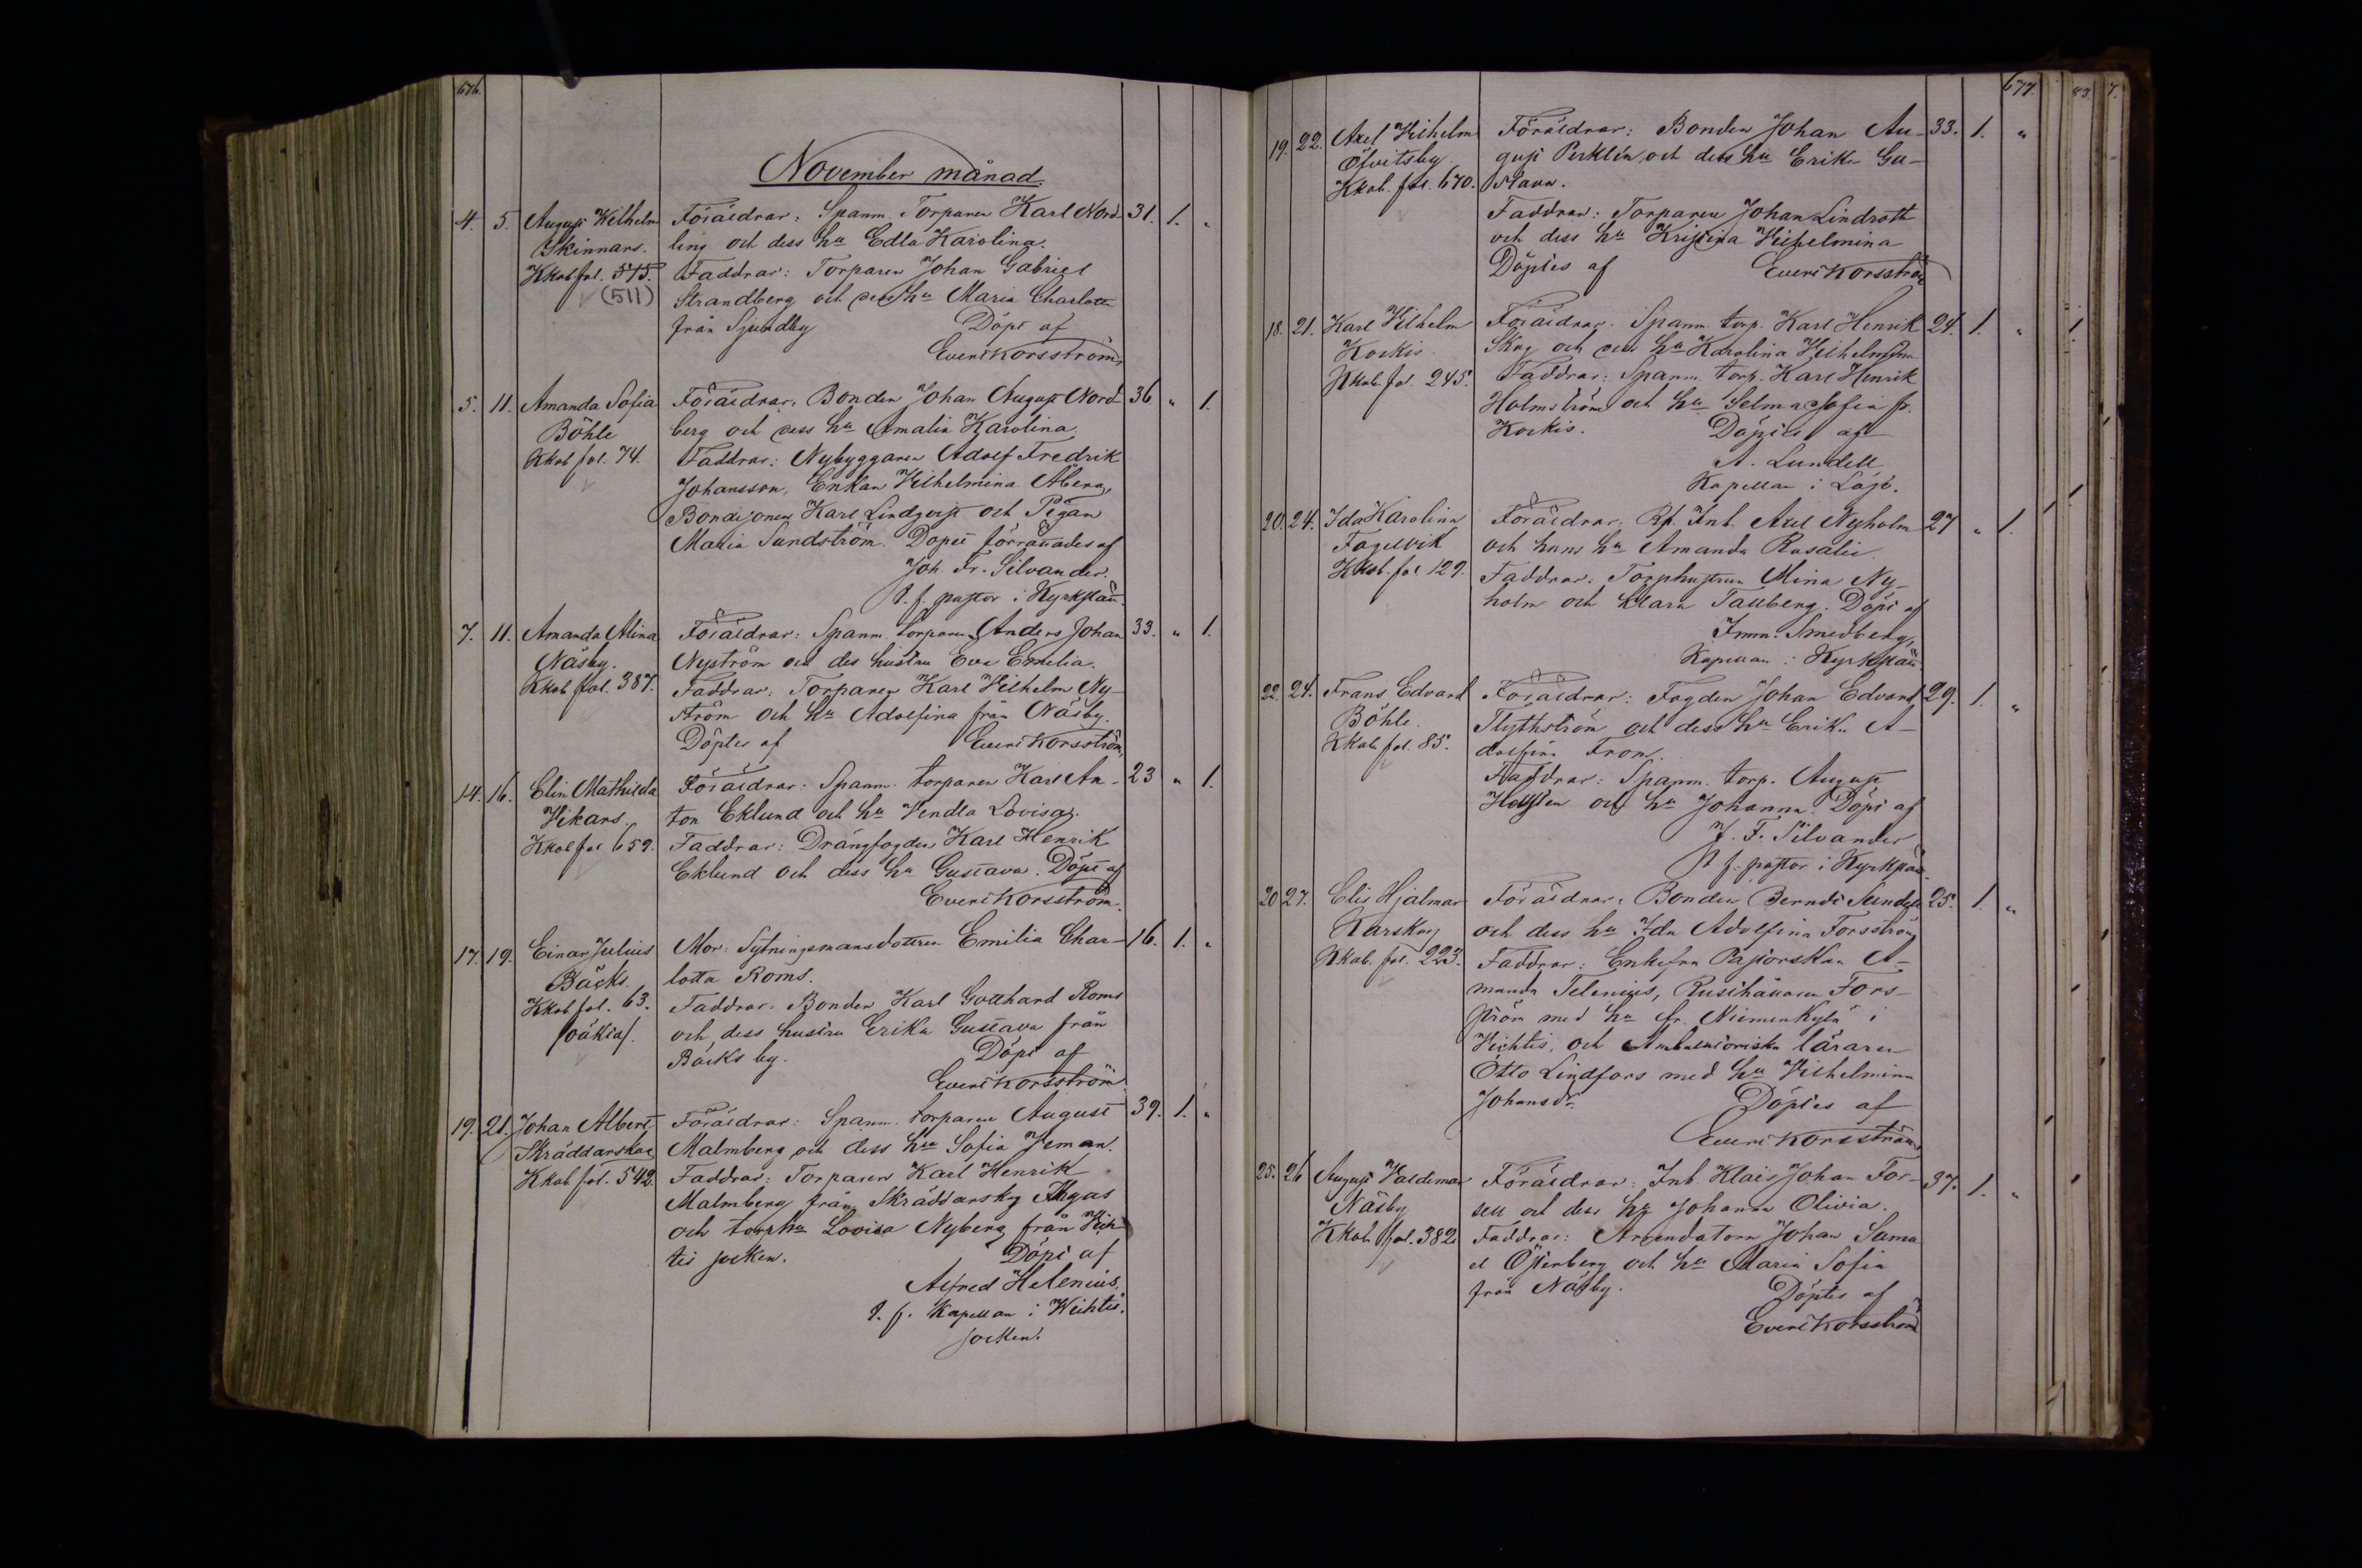 676.
November månad.
4. 5. August Wilhelm Föräldrar: Spanm. Torparen Karl Nord- 31. 1. "
Skinnars. ling och dess hu Edla Karolina.
Kkob fol. 515. Faddrar: Torparen Johan Gabriel
(511) Strandberg och dess hu Maria Charlotta
från Sjundby Döpt af
Evert Korsström,
5. 11. Amanda Sofia Föräldrar: Bonden Johan August Nord- 36 " 1.
Böhle berg och dess hu Amalia Karolina.
Kkob fol. 74. Faddrar: Nybyggaren Adolf Fredrik
Johansson, Enkan Vilhelmina Åberg,
Bondesonen Karl Lindqvist och Pigan
Maria Sundström. Dopet förrättades af
Joh. Fr. Silvander.
t. f. pastor i Kyrkslätt.
7. 11. Amanda Alina Föräldrar: Spanm. torparen Anders Johan 33. " 1.
Näsby. Nyström och des hustru Eva Emelia.
Kkob fol. 387. Faddrar: Torparen Karl Vilhelm Ny-
ström och hu Adolfina från Näsby.
Döptes af Evert Korsström,
14. 16. Elin Mathilda Föräldrar: Spanm. torparen Karl An- 23 " 1.
Vikars. ton Eklund och hu Vendla Lovisa.
Kkob fol 659. Faddrar: Drängfogden Karl Henrik
Eklund och dess hu Gustava. Döpt af
Evert Korsström.
17. 19. Einar Julius Mor: Sytningsmansdottren Emilia Char- 16. 1. "
Bäcks. lotta Roms.
Kkob fol. 63. Faddrar: Bonden Karl Gotthard Roms
/oäkta/. och dess hustru Erika Gustava från
Bäcks by. Döpt af
Evert Korsström
19. 21. Johan Albert Föräldrar: Spanm. torparen August 39. 1. "
Skräddarskog Malmberg och dess hu Sofia Jeman.
Kkob fol. 542 Faddrar: Torparen Karl Henrik
Malmberg från Skräddarskog
och torphu Lovisa Nyberg från Vich-
tis socken. Döpt af
Alfred Helenius.
t. f. Kapellan i Wichtis
socken.
677.
19. 22. Axel Vilhelm Föräldrar: Bonden Johan Au- 33. 1. "
Ölvitsby. gust Perklén och dess hu Erika Gu-
Kkob. fol. 670. stava.
Faddrar: Torparen Johan Lindroth
och dess hu Kristina Vilhelmina
Döptes af Evert Korsström
18. 21. Karl Vilhelm Föräldrar: Spanm. torp. Karl Henrik 24. 1. "
Kockis Skog och dess hu Karolina Vilhelmina
Kkob fol. 245. Faddrar: Spanm. torp. Karl Henrik
Holmström och hu Selma Sofia fr.
Kockis. Döptes af
A. Lundell
Kapellan i Lojo.
20. 24. Ida Karolina Föräldrar: Rf. Inh. Axel Nyholm 27 " 1.
Fagervik och hans hu Amanda Rosalie.
Kkob. fol 129. Faddrar: Torphustrun Mina Ny-
holm och Klara Tallberg. Döpt af
Imm. Smedberg,
Kapellan i Kyrkslätt.
22. 24. Frans Edvard Föräldrar: Fogden Johan Edvard 29. 1. "
Böhle. Flythström och dess hu Erika A-
Kkob fol. 85. dolfina From.
Faddrar: Spanm. torp. August
Hellsten och hu Johanna. Döpt af
J. F. Silvander
t f. pastor i Kyrkslätt.
20 27. Elis Hjalmar Föräldrar: Bonden Berndt Sundell 25. 1. "
Karskog och dess hu Ida Adolfina Forsström
Kkob. fol. 223. Faddrar: Enkefru Pastorskan A-
manda Telenius, Rusthållaren Fors-
ström med hu fr. Niemenkylä i
Vichtis, och Ambulatoriska läraren
Otto Lindfors med hu Vilhelmina
Johansdr. Döptes af
Evert Korsström,
25. 26 August Valdemar Föräldrar: Inh. Klas Johan For- 37. 1. "
Näsby sell och dess hu Johanna Olivia.
Kkob fol. 382. Faddrar: Arrendatorn Johan Samu-
el Österberg och hu Maria Sofia
från Näsby. Döptes af
Evert Korsström